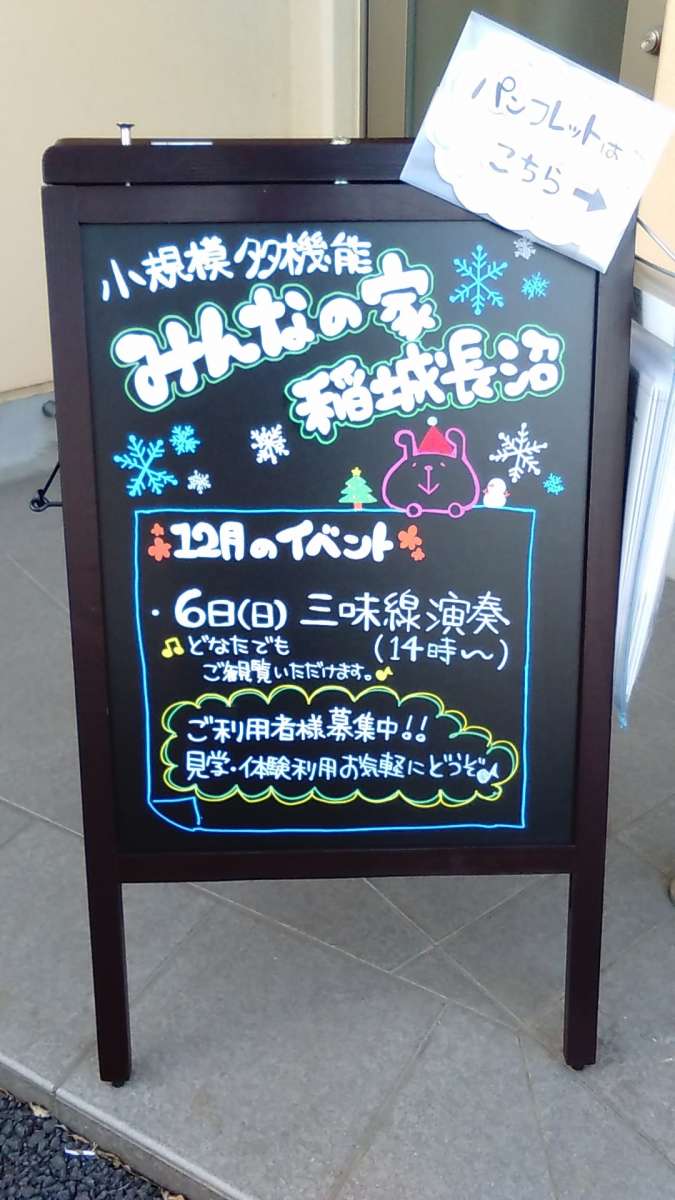 パンフレットは
こちら→
小規模多機能
みんなの家
稲城長沼
12月のイベント
・6日(日) 三味線演奏
(14時～)
どなたでも
ご観覧いただけます。
ご利用者様募集中!!
見学・体験利用お気軽にどうぞ